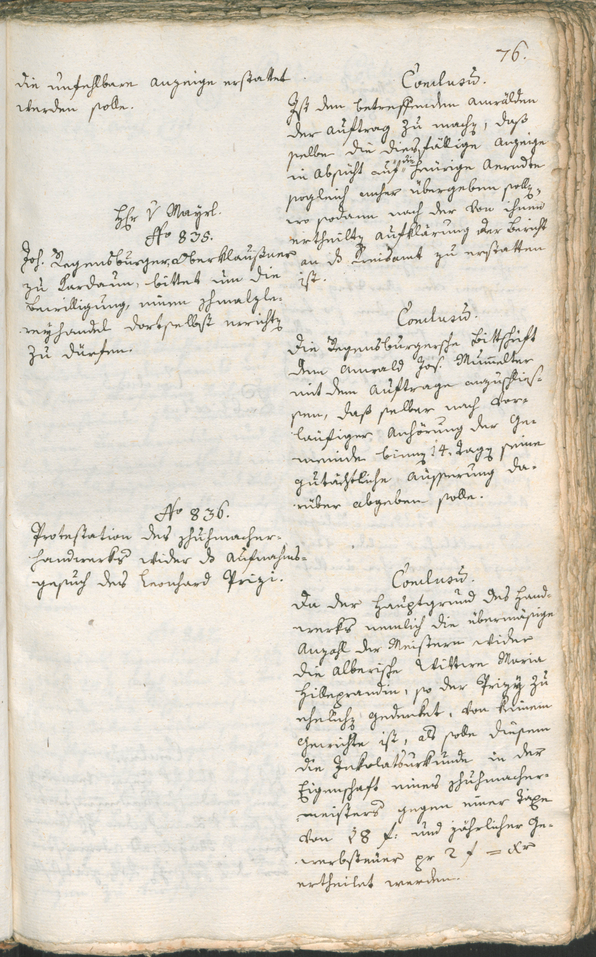 76.
die unfehlbare anzeige erstattet
werden solle.
Conclusum.
Ist dem betreffenden Anwälden
der Auftrag zu machen, daß
selbe die diesfällige Anzeige
in Absicht auf die heurige Aerndte
sogleich anher übergeben sollen,
wo sodann nach der von ihnen
ertheilten Aufklärung der Bericht
an das Kreisamt zu erstatten
ist.
Hr v Mayrl.
No 835.
Joh. Regensburger, Oberklaußner
zu Kardaun, bittet um die
Bewilligung, einen schmalzle-
reyhandel dortselbst errichten
zu dürfen.
Conclusum.
Die Regensburgersche Bittschrift
dem Anwald Jos. Mumelter
mit dem Auftrage anzuschlies-
sen, daß selber nach vor-
läufiger Anhörung der Ge-
meinde binnen 14. Tagen seine
gutächtliche Äusserung da-
rüber abgeben solle.
No 836.
Protestation des schuhmacher-
handwerks wider das Aufnahms-
gesuch des Leonhard Prizi.
Conclusum.
Da der Hauptgrund des Hand-
werks nemlich die übermäsige
Anzahl der Meistern wider
die Alberische Wittwe Maria
Hilleprandin, so der Prizy zu
ehelichen gedenket, von keinem
Gewichte ist, als solle diesem
die Inkolatsurkunde in der
Eigenschaft eines schuhmacher-
meisters gegen einer Taxe
von 18 f: und jährlicher Ge-
werbsteuer pr 2 f = xr
ertheilet werden.